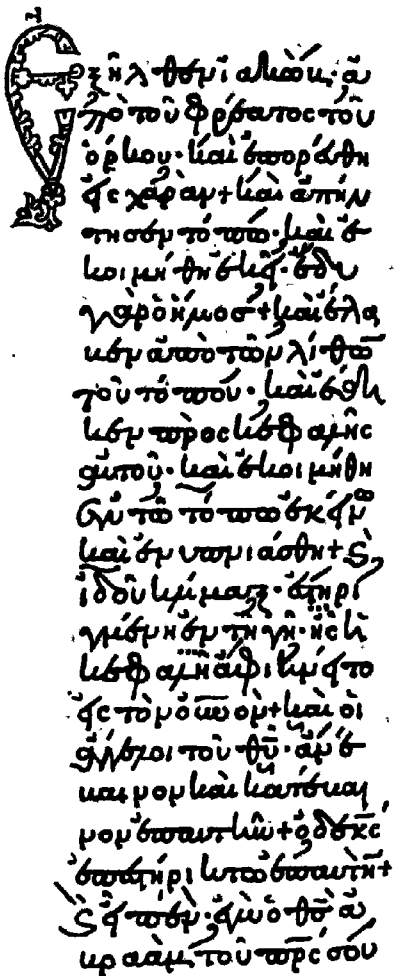 Ἐξῆλθεν ἰακὼβ· ἀ
πὸ τοῦ φρέατος τοῦ
ὅρκου· καὶ ἐπορεύθη
εἰς χαρὰν + καὶ ἀπήν
τησεν τόπω· καὶ ἐ
κοιμήθη ἐκεῖ· ἔδυ
γὰρ ὁ ἥλιος + καὶ ἔλα
βεν ἀπὸ τῶν λίθω̅
τοῦ τόπου· καὶ ἔθη
κεν πρὸς κεφαλῆς
αὐτοῦ· καὶ ἐκοιμήθη
ἐν τῶ τόπω ἐκείνω
καὶ ἐνυπνιάσθη + καὶ
ἰδοὺ κλίμαξ· ἐστηρι
γμένη ἐν τῆ γῆ· ἧς ἡ
κεφαλὴ ἀφικνεῖτο
εἰς τὸν ο̅υ̅ν̅ὸν + καὶ οἱ
ἄγγελοι τοῦ θ̅υ̅· ἀνέ
βαινον καὶ κατέβαι
νον ἐπαυτὴν + ὁ δὲ κ̅ς̅
ἐπεστήρικτο ἐπαυτῆς +
καὶ εἶπεν· ἐγὼ ὁ θ̅ς̅ ἀ
βραὰμ τοῦ π̅ρ̅ς̅ σου